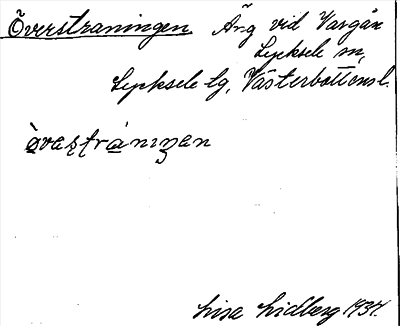 Överstraningen. Äng vid Vargån
Lycksele sn,
Lycksele lg, Västerbottensl.
Lisa Lidberg 1934.